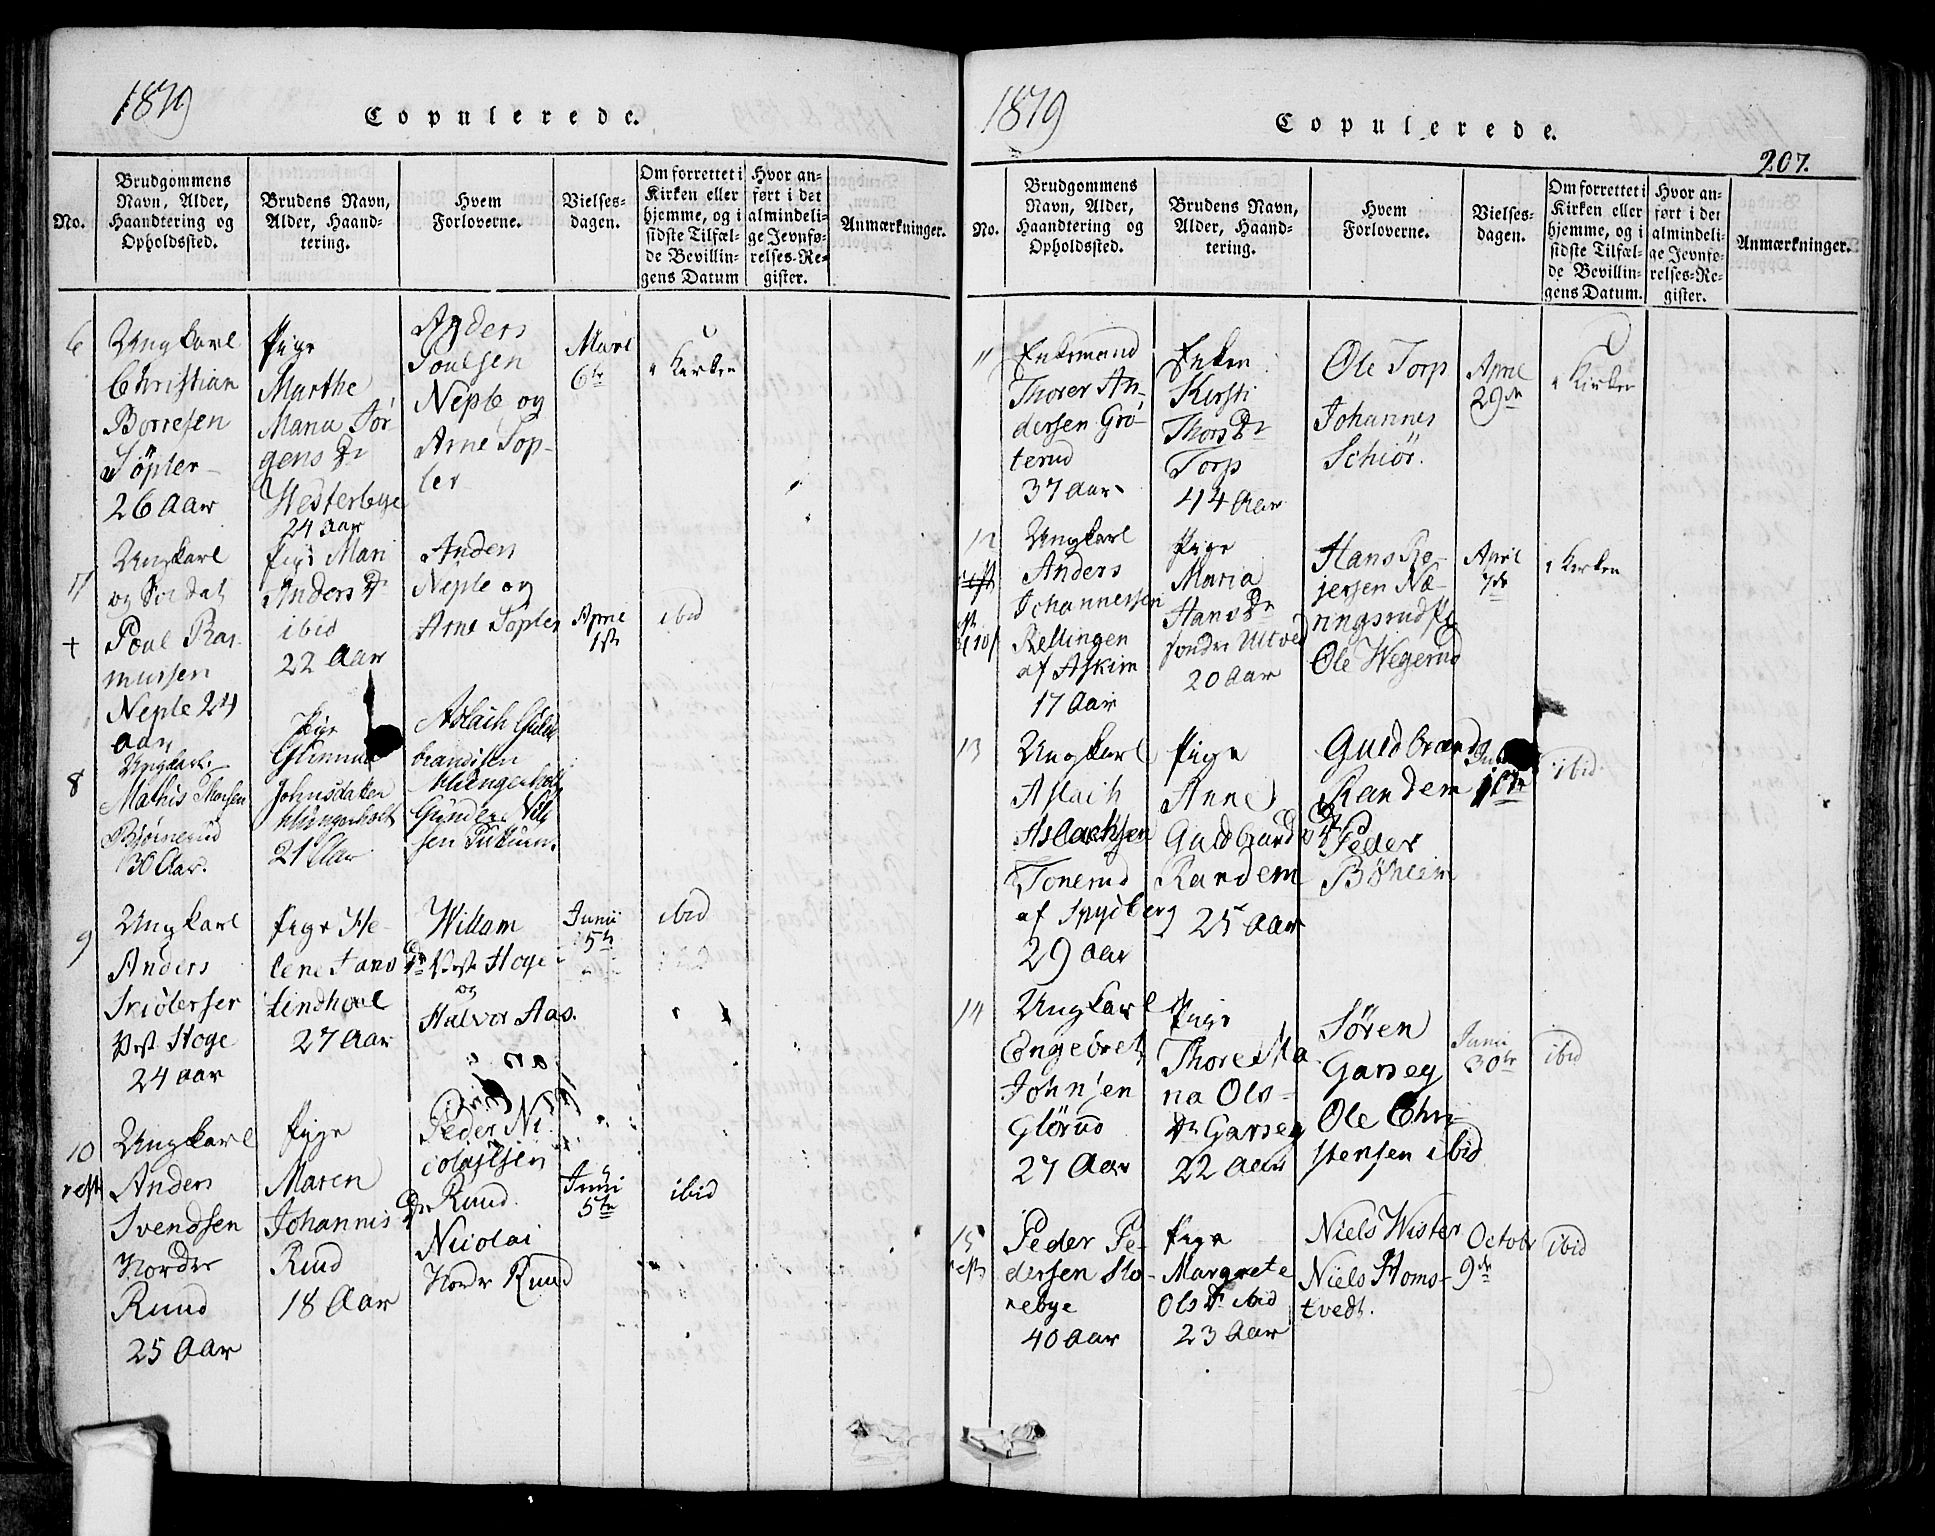 1819
Copulerede.
No.
Brudgommens
Navn, Alder,
Haandtering og
Opholdssted.
Brudens Navn,
Alder, Haand-
tering.
Hvem
Forloverne.
Vielses-
dagen.
Om forrettet i
Kirken eller
hjemme, og i
sidste Tilfæl-
de Bevillin-
gens Datum
Hvor an-
ført i det
almindeli-
ge Jevnfø-
relses-Re-
gister.
Anmærkninger.
6
Ungkarl
Christian
Borresen
Söpler
26 Aar
Pige
Marthe
Maria Jör
gens Dr
Westerbye
24 Aar
Anders
Poulsen
Neple og
Arne Sop-
ler
Mart
6te
i Kirken
Ungkarl
og Soldat
+
Poul Ras
mussen
Neple 24
Aar
Pige Mari
Anders Dr
ibid
22 Aar
Anders
Neple og
Arne Sopler
April
1ste
ibid
8
Ungkarl
Mathis
Bjørnerud
30 Aar.
Pige
Johnsdatter
21 Aar
Aslach Guld
brandsen
Gunder
9
Ungkarl
Anders
West Hoge
24 Aar
Pige He-
lene Hans Dr
Lindhoul
27 Aar
Willam
West Hoge
og
Halvor Aas.
Junii
5te
ibid
10
Ungkarl
Anders
Svendsen
Nordre
Ruud
25 Aar
Pige
Maren
Johannis Dr
Ruud
18 Aar
Peder Ni
colaisen
Ruud
Nicolai
Nordr Ruud
Junii
5te
ibid
1819
Copulerede.
207.
No.
Brudgommens
Navn, Alder,
Haandtering og
Opholdssted.
Brudens Navn,
Alder, Haand-
tering.
Hvem
Forloverne.
Vielses-
dagen.
Om forrettet i
Kirken eller
hjemme, og i
sidste Tilfæl-
de Bevillin-
gens Datum.
Hvor an-
ført i det
almindeli-
ge Jevnfø-
relses-Re-
gister.
Anmærkninger.
11
Enkemand
Thorer An-
dersen Grö-
terud
37 Aar
Enken
Kirsti
Thors Dr
Torp
44 Aar
Ole Torp
Johannes
Schiör.
April
29de
i Kirken
12
Ungkarl
Anders
Johannessen
Rellingen
af Askim
17 Aar
Pige
Maria
Hans Dr
søndre Ultved
20 Aar
Hans Re-
jersen Næ-
ringsrud
Ole Wegerud
April
7de
i Kirken
13
Ungkarl
Aslach
Aslachsen
Tonerud
af Spydberg
29 Aar
Pige
Anne
Guldbrands Dr
Randem
25 Aar
Guldbrand
Randem
Peder
Böhleim
ibid.
14
Ungkarl
Engebret
Johnsen
Glörud
27 Aar
Pige
Thore Ma
na Ols-
Dr Garseg
22 Aar
Sören
Garseg
Ole Chri-
stensen ibid
Junii
30te
ibid
15
Peder Pe-
dersen Sto-
rebye
40 Aar
Pige
Margrete
Ols Dr ibid
23 Aar
Niels Wister
Niels Homs-
tvedt.
Octobr
9de
ibid